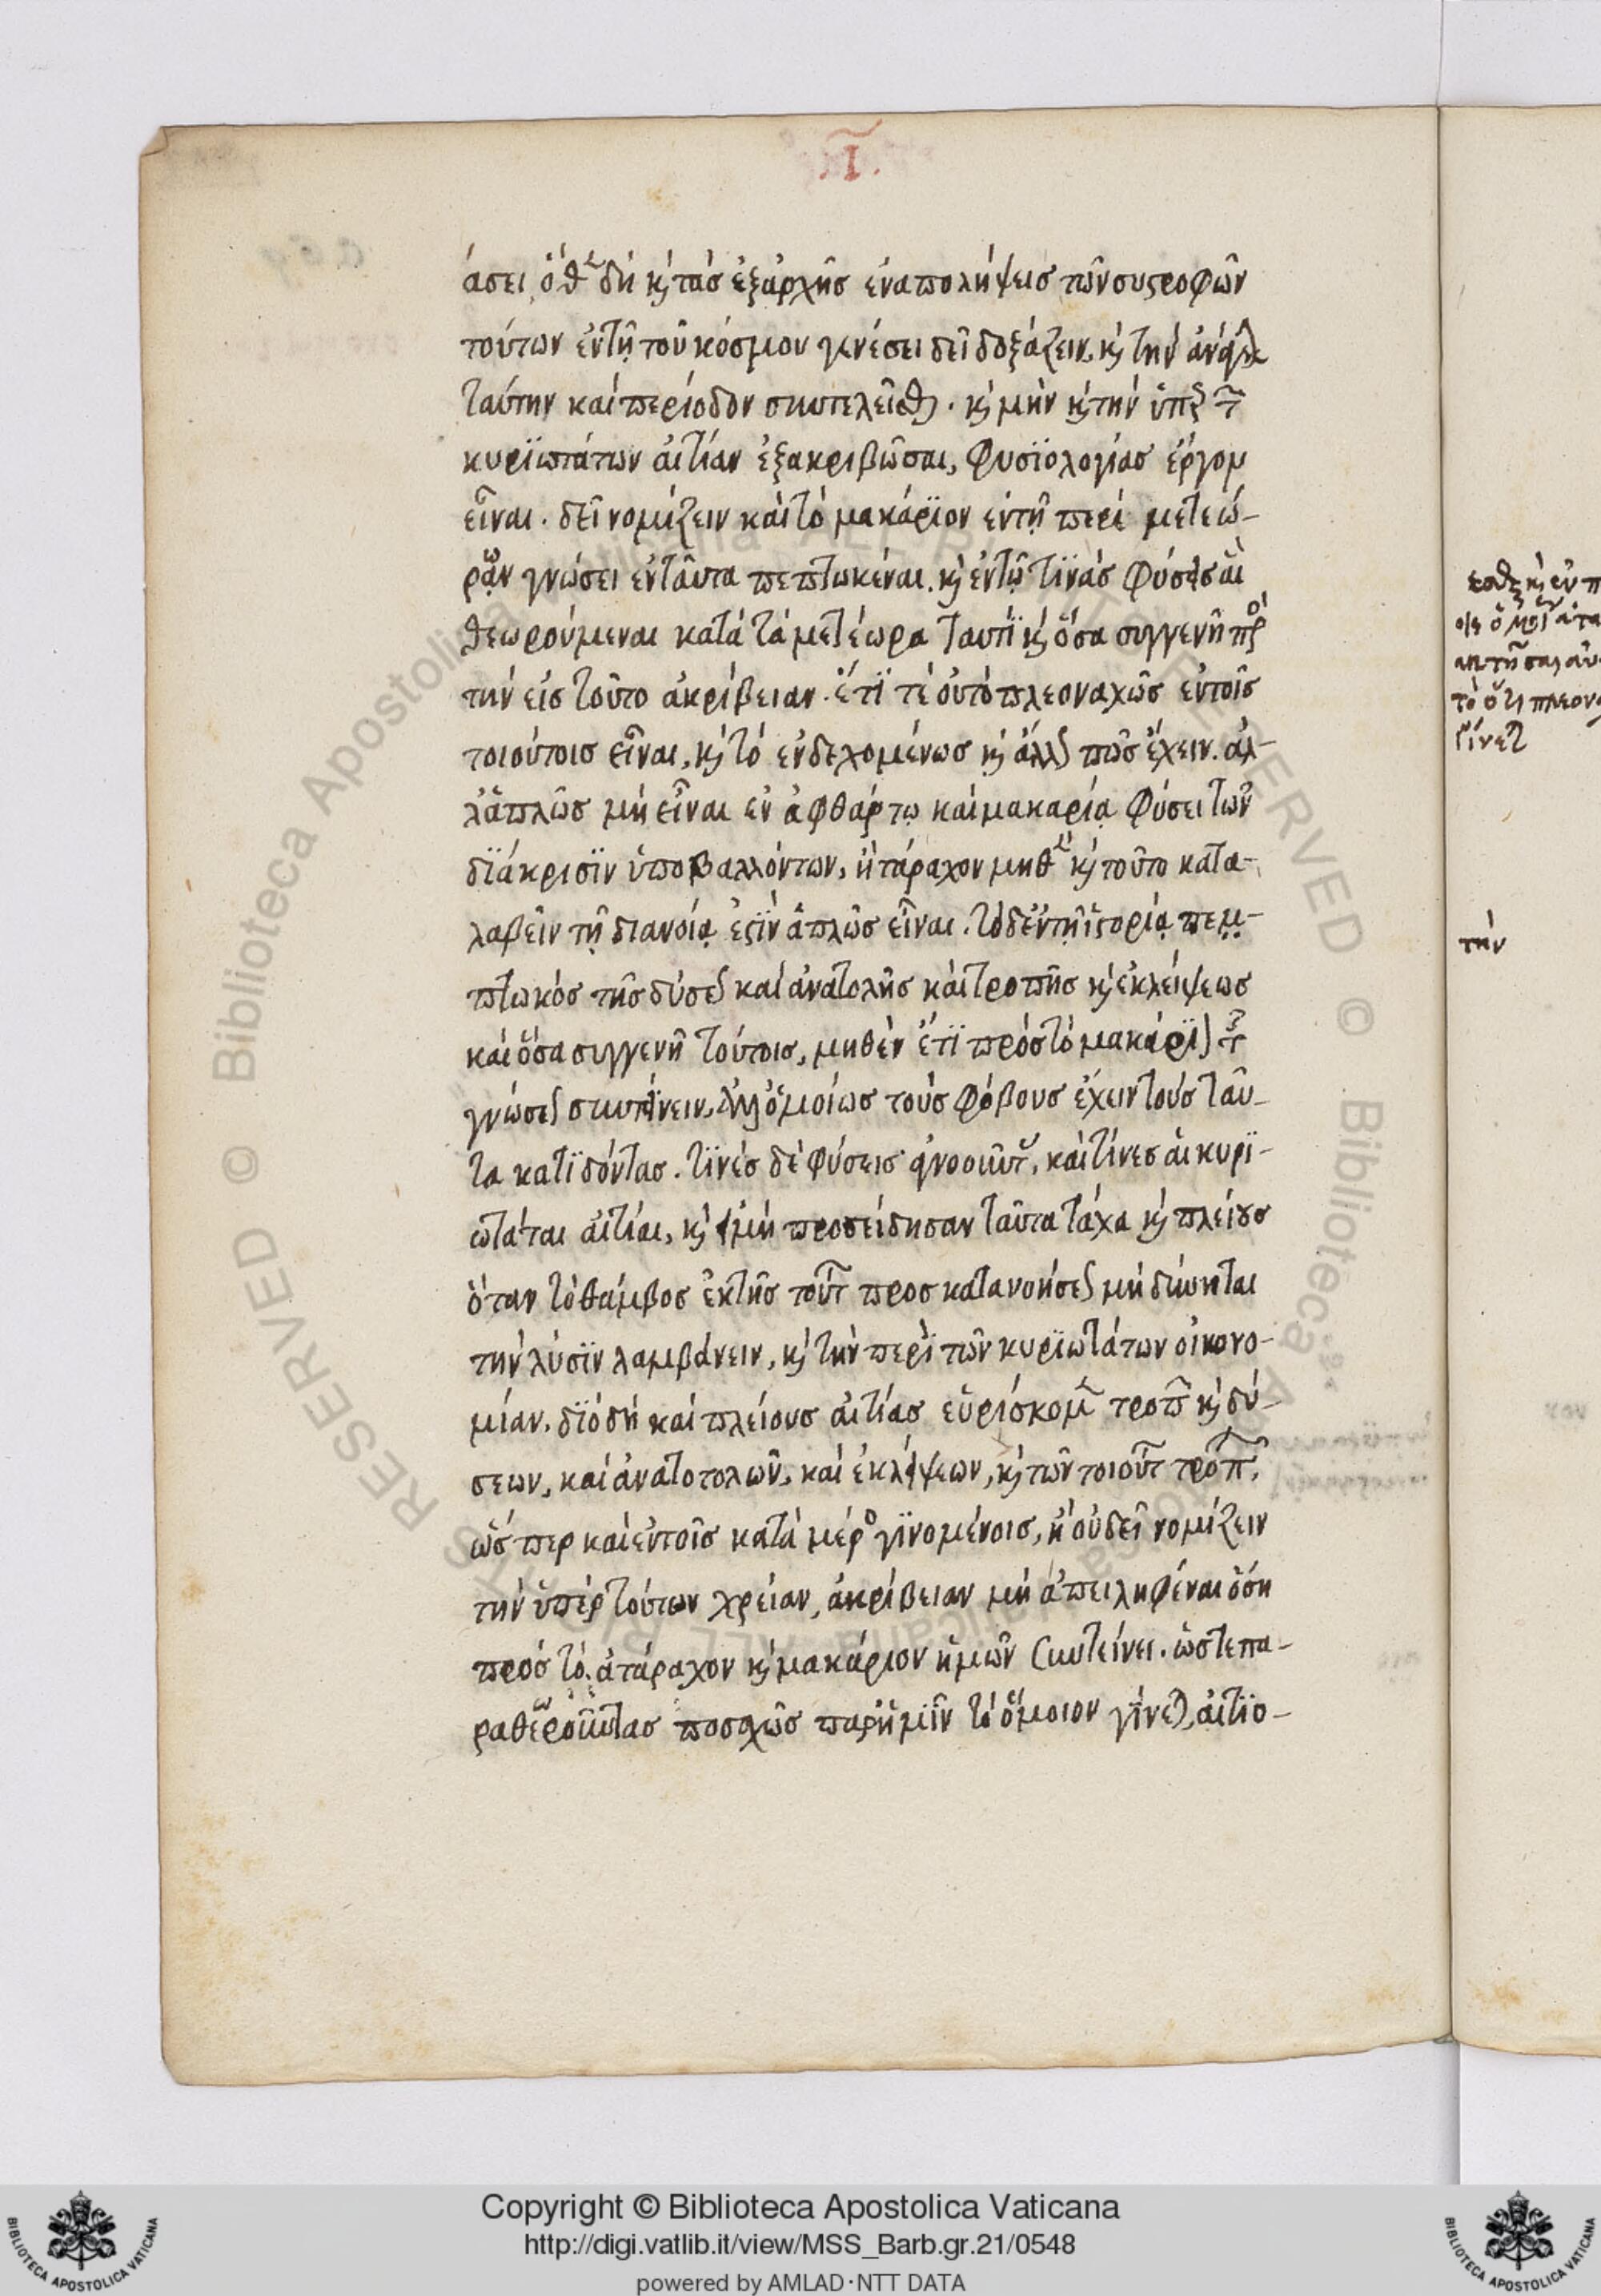 .Ι.
άσει, ὅθεν δὴ κ τὰσ ἐξἀρχῆσ ἐναπολήψεισ τῶν συστροφῶν
τούτων ἐν τῇ τοῦ κόσμου γενέσει δεῖ δοξάζειν, κ τὴν ἀνάγκην
ταύτην καὶ περίοδον συντελεῖσθαι. κ μὴν κ τὴν ὑπὲρ τῶν
κυρϊωτάτων αἰτίαν ἐξακριβῶσαι, φυσϊολογίασ ἔργον
εἶναι. δεῖ νομίζειν καὶ τὸ μακάρϊον ἐν τῇ περὶ μετεώ-
ρων γνώσει ἐνταῦτα πεπτωκέναι. κ ἐν τῷ τϊνὰσ φύσεισ αἱ
θεωρούμεναι κατὰ τὰ μετέωρα ταυτϊ κ ὅσα συγγενῆ πρὸσ
τὴν εἰσ τοῦτο ἀκρίβειαν. ἔτϊ τὲ οὐ τὸ πλεοναχῶσ ἐν τοῖσ
τοιούτοισ εἶναι, κ τὸ ἐνδεχομένωσ κ ἄλλωσ πῶσ ἔχειν. ἀλ-
λἁπλῶσ μὴ εἶναι ἐν ἀφθάρτῳ καὶ μακαρίᾳ φύσει τῶν
δϊάκρισϊν ὑποβαλλόντων, ἢ τάραχον μηθὲν κ τοῦτο κατα-
λαβεῖν τῇ διανοίᾳ ἐστὶν ἁπλῶσ εἶναι. τὸ δ' ἐν τῇ ἱστορίᾳ πεμ-
πτωκόσ τῆσ δύσεωσ καὶ ἀνατολῆσ καὶ τροπῆσ κ ἐκλείψεωσ
καὶ ὅσα συγγενῆ τούτοισ, μηθὲν ἔτϊ πρὸσ τὸ μακάρϊον τῆσ
γνώσεωσ συντείνειν, ἀλλ' ὁμοίωσ τοὺσ φόβουσ ἔχειν τοὺσ ταῦ-
τα κατϊδόντασ. τϊνὲσ δὲ φύσεισ ἀγνοοῦντεσ, καὶ τίνεσ αἱ κυρϊ-
ώταται αἰτίαι, κ εἰ μὴ προσείδησαν ταῦτα τάχα κ πλείουσ
ὅταν τὸ θάμβοσ ἐκ τῆσ τούτων προσκατανοήσεωσ μὴ δύνηται
τὴν λύσϊν λαμβάνειν, κ τὴν περὶ τῶν κυρϊωτάτων οἰκονο-
μίαν. δϊὸ δὴ καὶ πλείουσ αἰτίασ εὑρίσκομεν τροπῶν κ δύ-
σεων, καὶ ἀνατοτολῶν, καὶ ἐκλήψεων, κ τῶν τοιούτων τρόπων,
ὥσπερ καὶ ἐν τοῖσ κατὰ μέροσ γϊνομένοισ, κ οὐ δεῖ νομίζειν
τὴν ὑπὲρ τούτων χρείαν, ἀκρίβειαν μὴ ἀπειληφέναι ὅση
πρὸσ τὸ ἀτάραχον κ μακάριον ἡμῶν συντείνει. ὥστε πα-
ραθεωροῦντασ ποσαχῶσ παρ' ἡμῖν τὸ ὅμοιον γίνεται, αἰτϊο-
τὴν